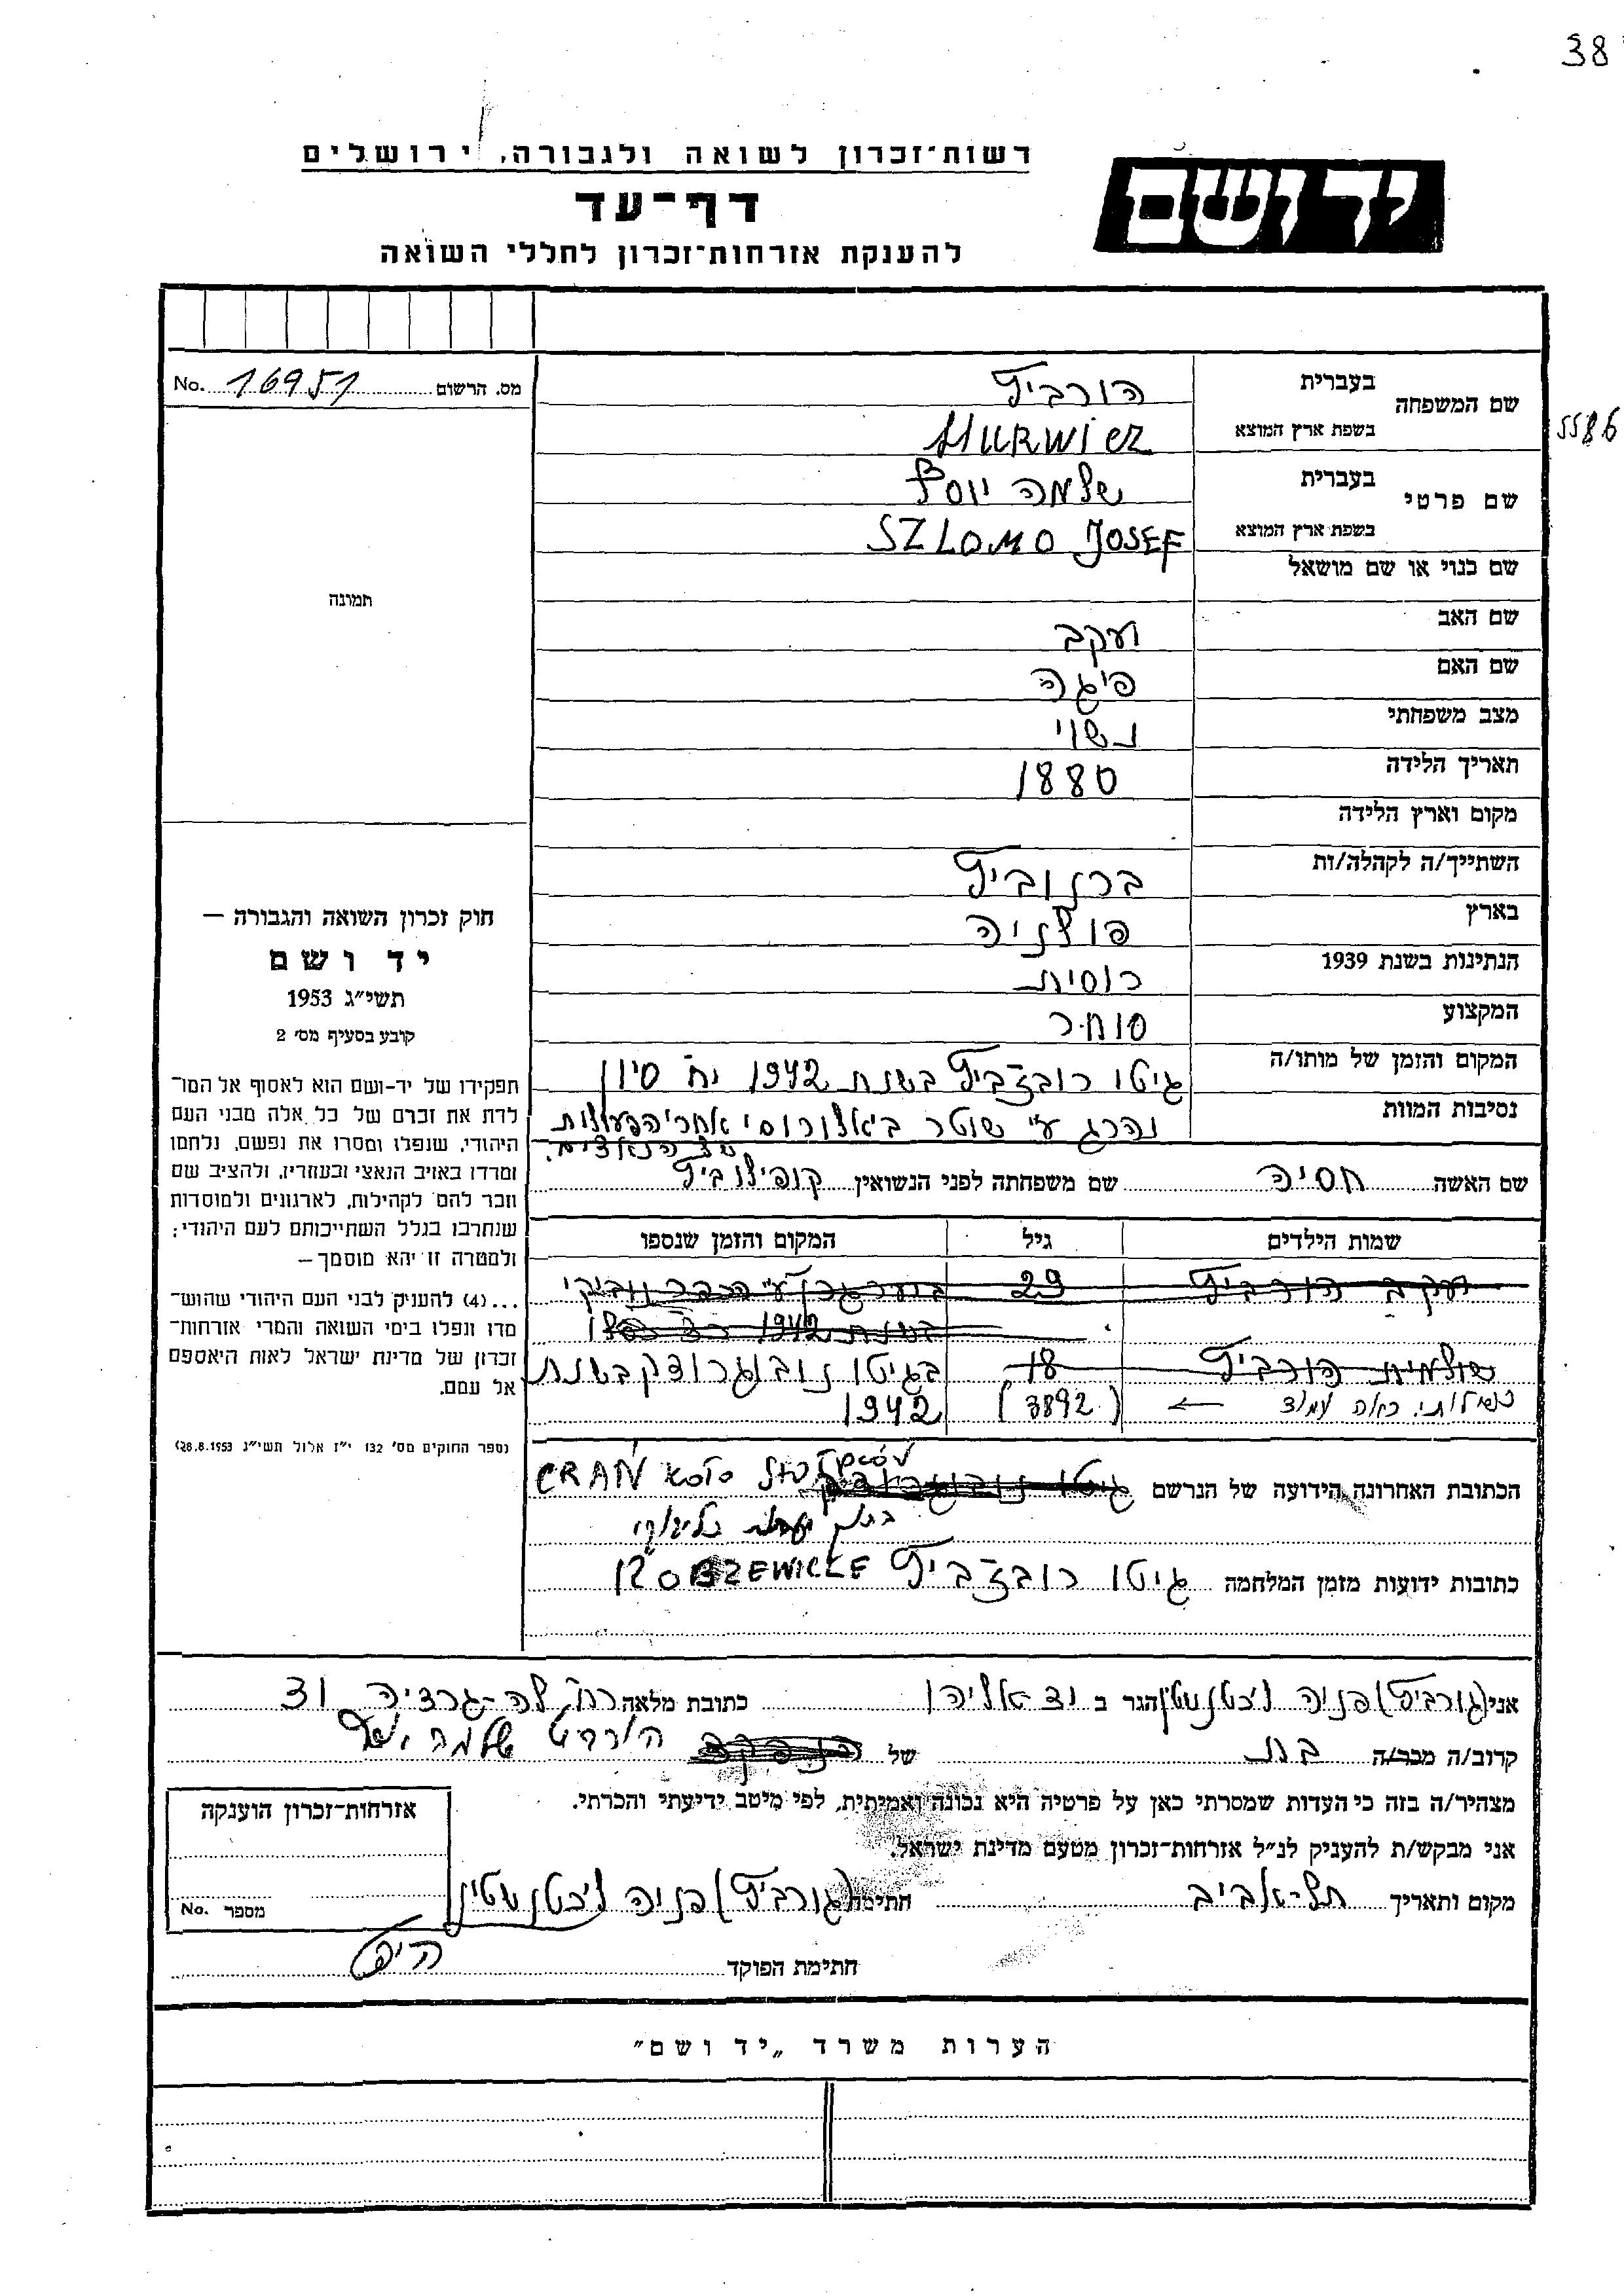 38
רשות-זכרון לשואה ולגבורה, ירושלים
יד ושם
דף-עד
להענקת אזרחות-זכרון לחללי השואה
מס. הרשום 16951 No.
שם המשפחה בעברית הורביץ
5586
בשפת ארץ המוצא HURWICZ
שם פרטי בעברית שלמה יוסף
בשפת ארץ המוצא SZLOMO JOSEF
שם כנוי או שם מושאל
תמונה
שם האב יעקב
שם האם פיגה
מצב משפחתי נשוי
תאריך הלידה 1880
מקום וארץ הלידה
השתייך/ה לקהלה/ות ברנוביץ
בארץ פולניה
הנתינות בשנת 1939 רוסית
המקצוע סוחר
המקום והזמן של מותו/ה גיטו רובז'ביץ בשנת 1942 יח סיון
נסיבות המוות נהרג ע"י שוטר ביאלורוסי אחרי הפעולות
של הנאצים.
שם האשה חסיה שם משפחתה לפני הנשואין קופילוביץ
שמות הילדים גיל המקום והזמן שנספו
יעקב הורביץ 29
בשנת 1942
שולמית הורביץ 18 בגיטו נובוגרודק בשנת
עמוד ← (3892) 1942
הכתובת האחרונה הידועה של הנרשם גיטו נובוגרודק
כתובות ידועות מזמן המלחמה גיטו רובז'ביץ ROBZEWICZE
חוק זכרון השואה והגבורה —
יד ושם
תשי"ג 1953
קובע בסעיף מס' 2
תפקידו של יד-ושם הוא לאסוף אל המו־
לדת את זכרם של כל אלה מבני העם
היהודי, שנפלו ומסרו את נפשם, נלחמו
ומרדו באויב הנאצי ובעוזריו, ולהציב שם
וזכר להם לקהילות, לארגונים ולמוסדות
שנחרבו בגלל השתייכותם לעם היהודי;
ולמטרה זו יהא מוסמך —
...(4) להעניק לבני העם היהודי שהוש־
מדו ונפלו בימי השואה והמרי אזרחות־
זכרון של מדינת ישראל לאות היאספם
אל עמם.
(ספר החוקים מס' 132 י"ז אלול תשי"ג 28.8.1953)
אני (גורביץ) פניה ליכטנשטין הגר ב יד אליהו כתובת מלאה רח' לה-גרדיה
קרוב/ה מכר/ה בת של הורביץ שלמה יוסף
מצהיר/ה בזה כי העדות שמסרתי כאן על פרטיה היא נכונה ואמיתית, לפי מיטב ידיעתי והכרתי.
אני מבקש/ת להעניק לנ"ל אזרחות-זכרון מטעם מדינת ישראל.
מקום ותאריך תל-אביב חתימה (גורביץ) פניה ליכטנשטין
אזרחות-זכרון הוענקה
מספר No.
חתימת הפוקד
הערות משרד „יד ושם"